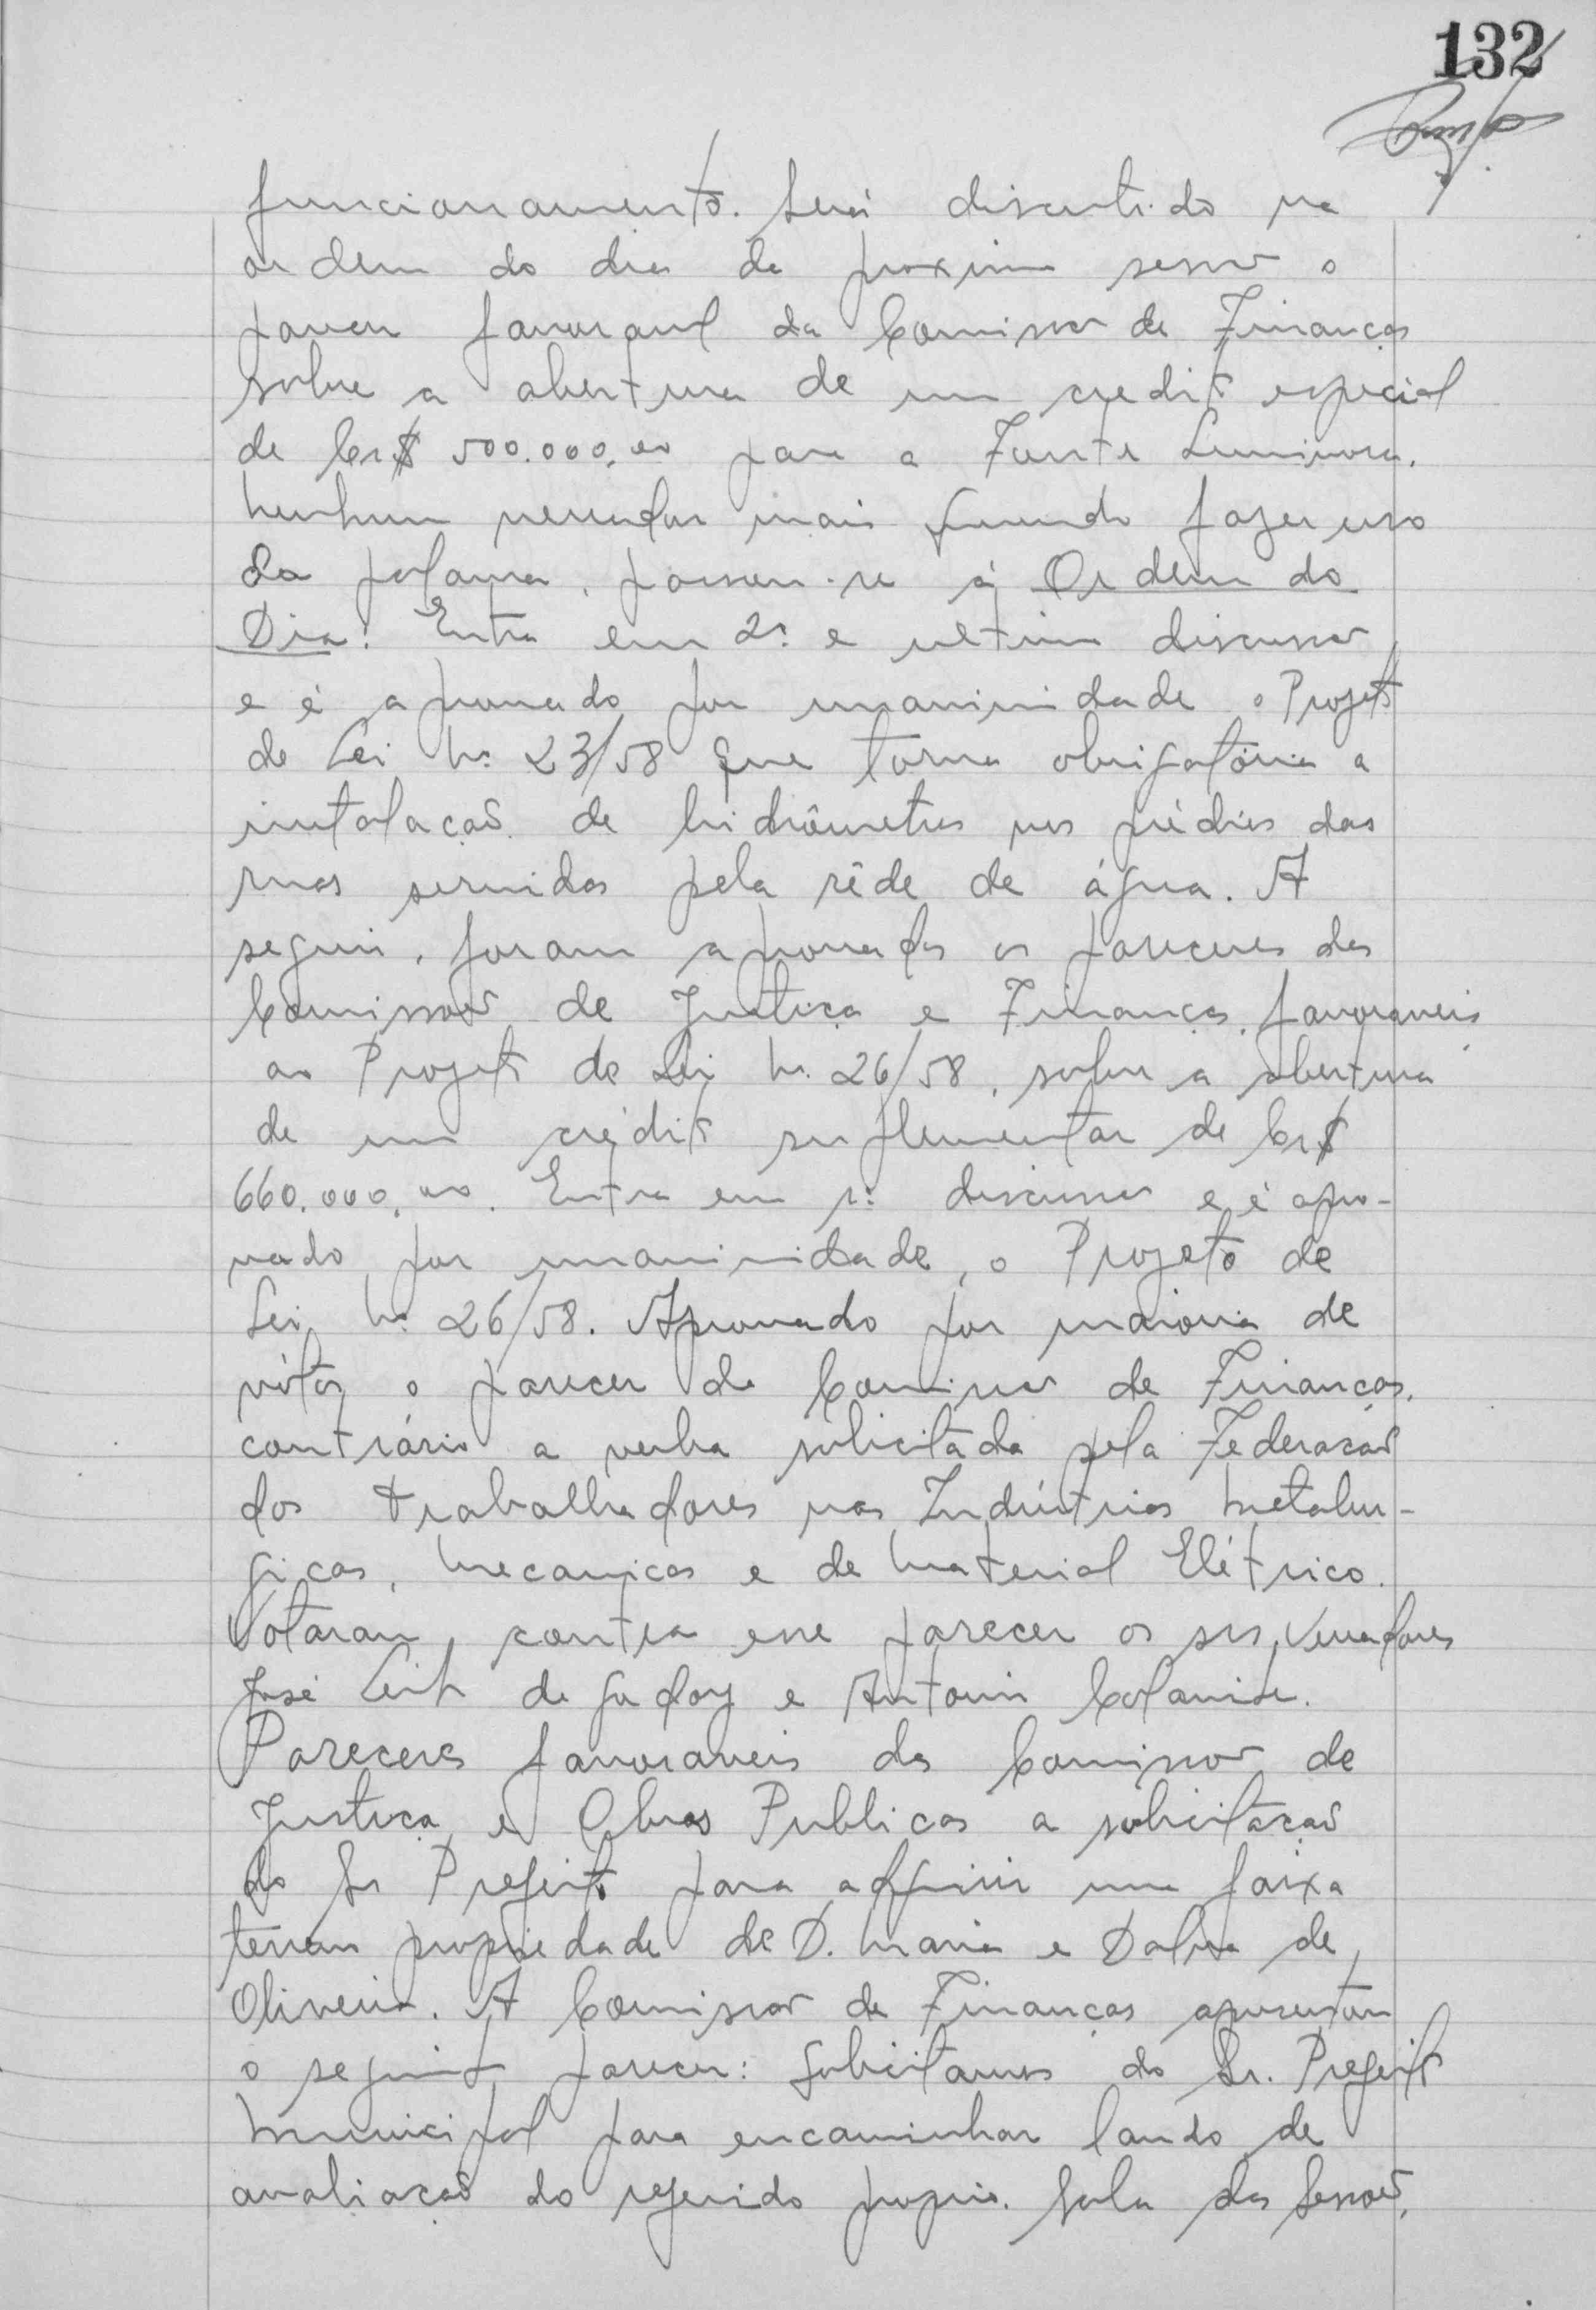 132
funcionamento. Será discutido na
ordem do dia da proxima sessão o
parecer favoravel da Comissão de Finanças
sobre a abertura de um credito especial
de Cr$ 500.000,00 para a Fonte Luminosa.
Nenhum vereador mais querendo fazer uso
da palavra, passou-se à Ordem do
Dia: Entra em 2ª e ultima discussão
e é aprovado por unanimidade o Projeto
de Lei Nº 23/58 que torna obrigatória a
instalação de hidrômetros nos prédios das
ruas servidas pela rêde de água. A
seguir, foram aprovados os pareceres das
Comissões de Justiça e Finanças, favoraveis
ao Projeto de Lei Nº 26/58, sobre a abertura
de um crédito suplementar de Cr$
660.000,00. Entra em 1ª discussão e é apro-
vado por unanimidade, o Projeto de
Lei Nº 26/58. Aprovado por maioria de
vótos o parecer da Comissão de Finanças,
contrário a verba solicitada pela Federação
dos Trabalhadores nas Indústrias Metalur-
gicas, Mecanicas e de Material Elétrico.
Votaram contra esse parecer os srs. Vereadores
José Leite de Godoy e Antonio
Pareceres favoraveis da Comissão de
Justiça e Obras Publicas a solicitação
do Sr Prefeito para adquirir uma faixa
terreno propriedade de D. Maria e Dalva de
Oliveira. A Comissão de Finanças apresentou
o seguinte parecer: Solicitamos do Sr. Prefeito
Municipal para encaminhar laudo de
avaliação do referido proprio. Sala das Sessões,